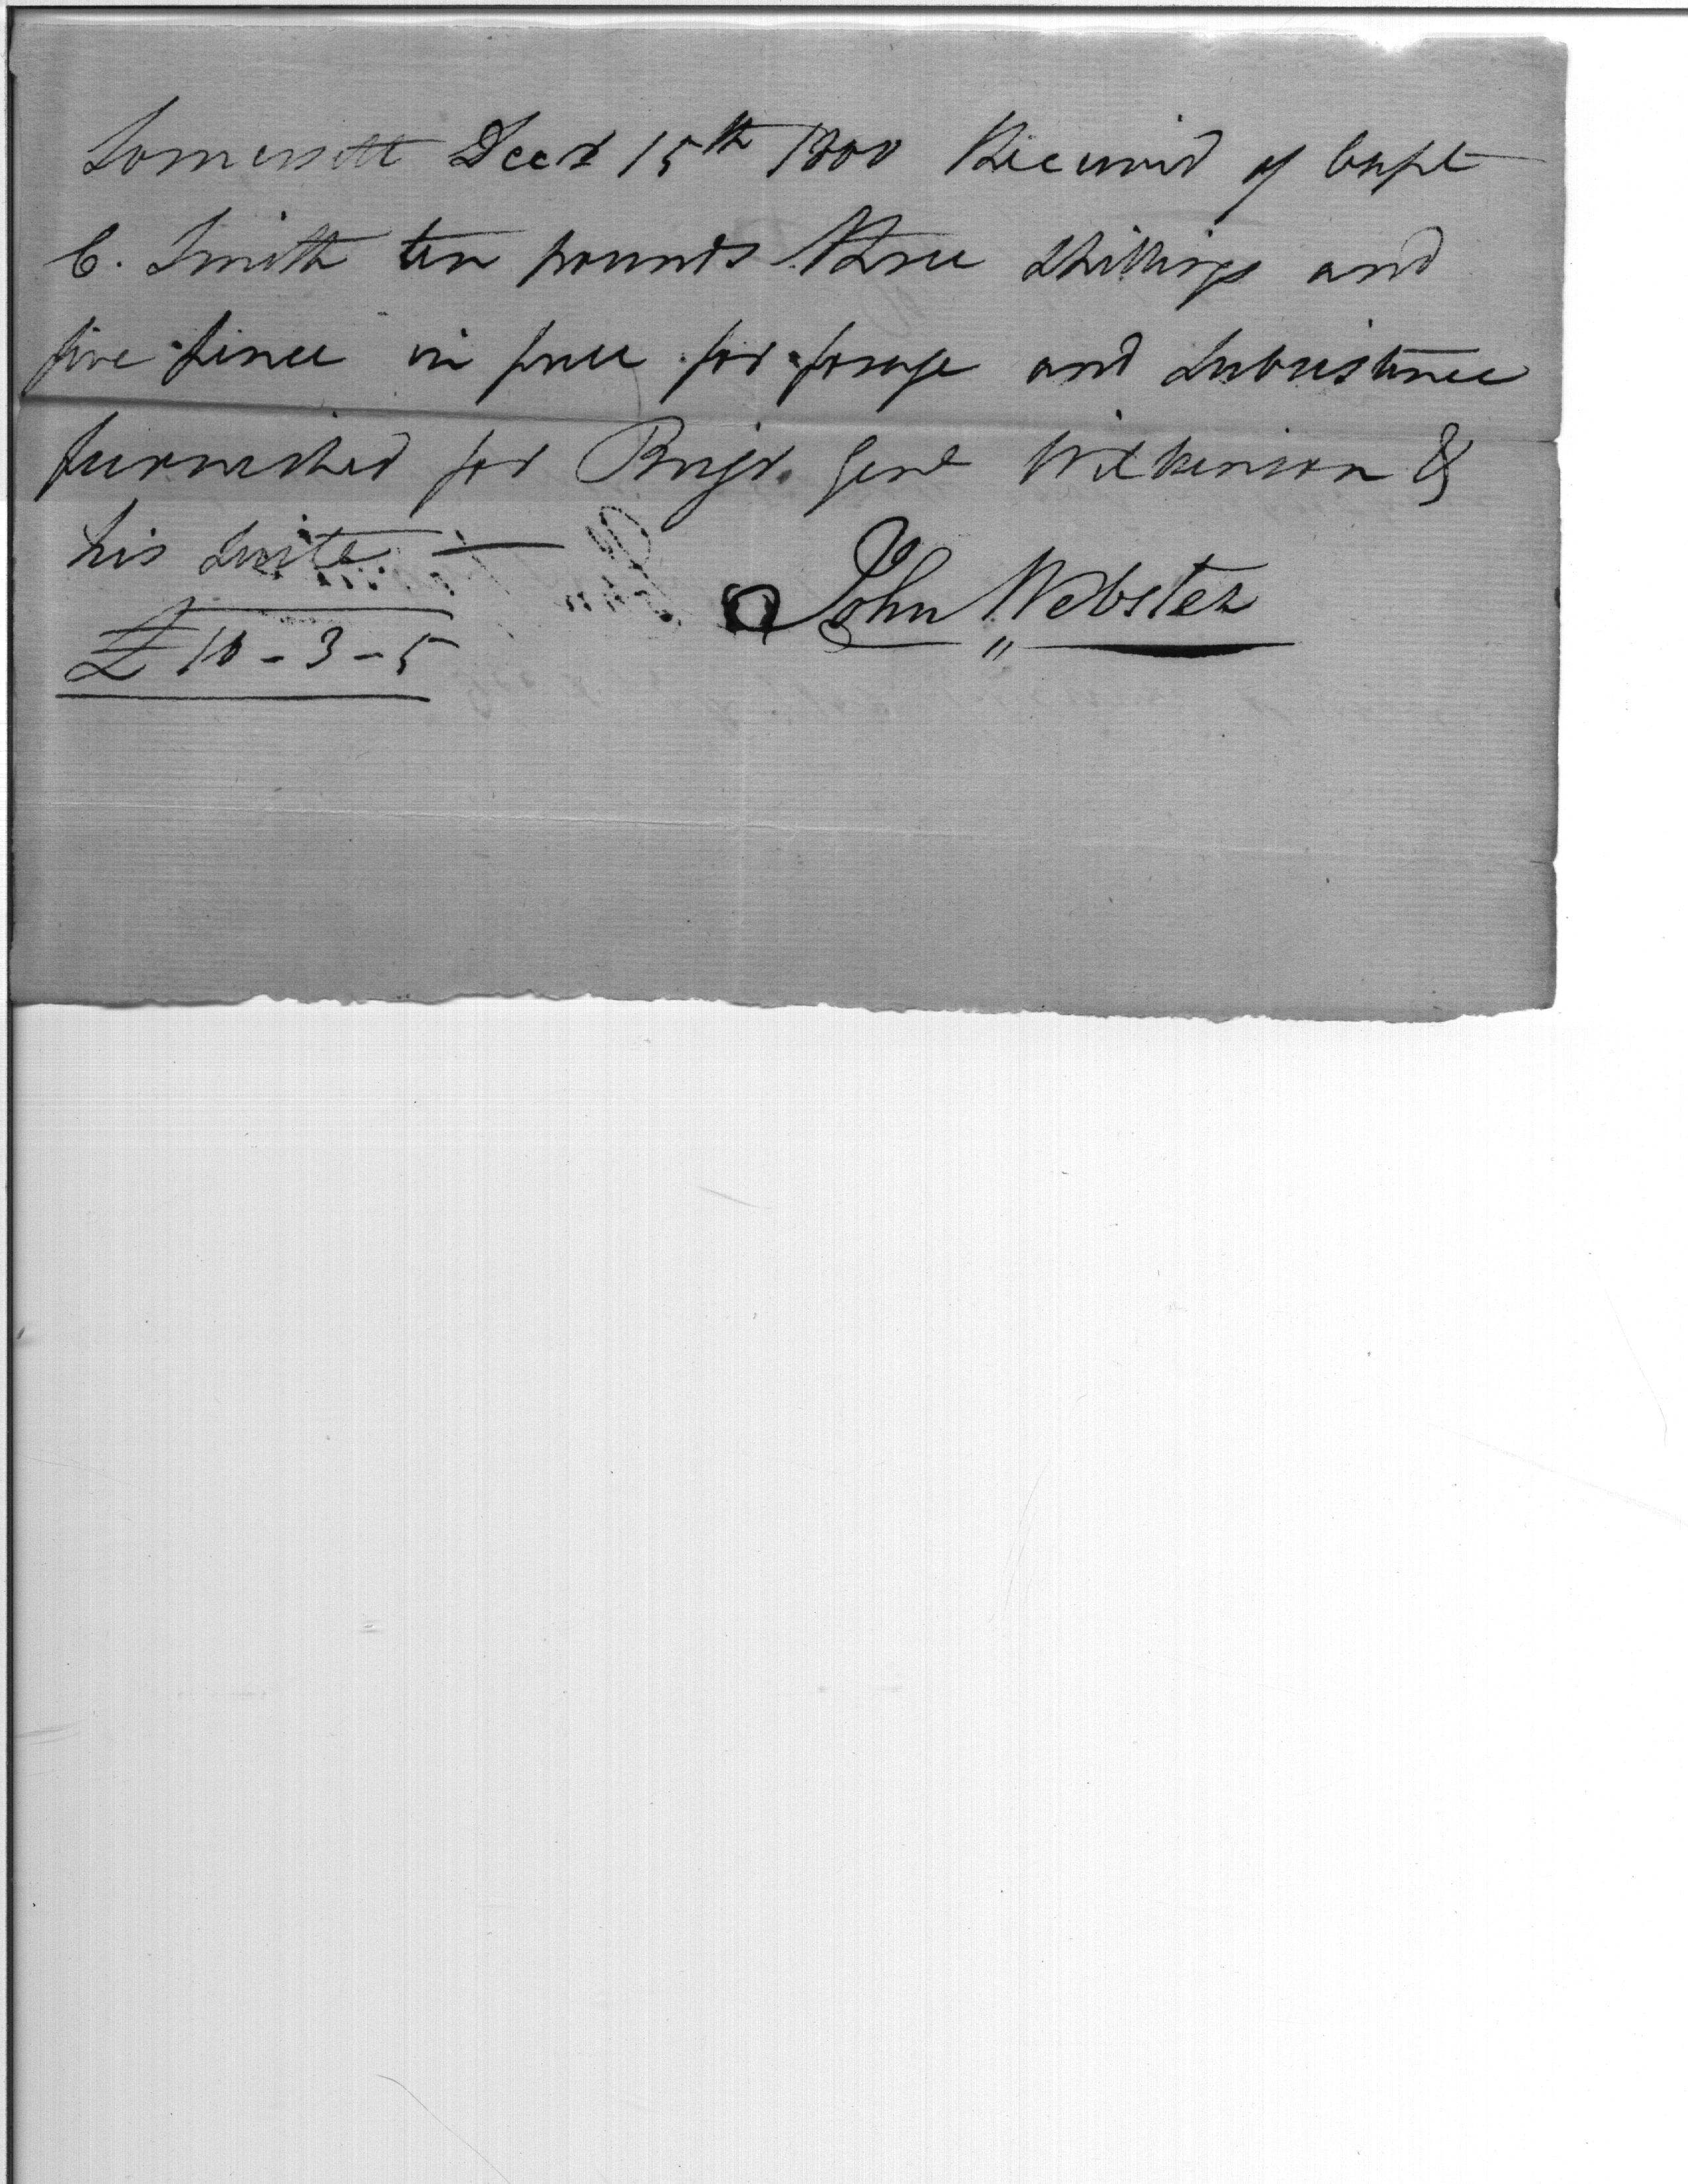 Somersett Decr 15th 1800 Received of Capt
C. Smith ten pounds three shillings and
five pence in full for forage and subsistence
furnished for Brigr. Genl Wilkinson &
his suite. —
£10-3-5
John Webster